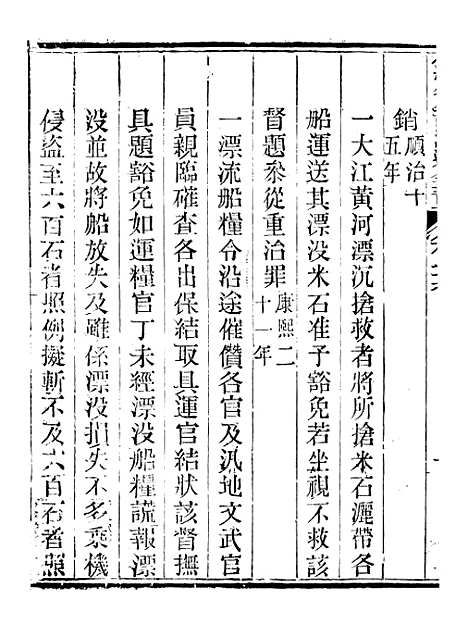 銷順治十五年
一大江黃河漂沉搶救者將所搶米石灑帶各
船運送其漂没米石准予豁免若坐視不救該
督題叅從重治罪康熙二十一年
一漂流船糧令沿途催儧各官及汛地文武官
員親臨確查各出保結取具運官結狀該督撫
具題豁免如運糧官丁未經漂没船糧謊報漂
没並故將船放失及雖係漂没損失不多乘機
侵盜至六百石者照例擬斬不及六百石者照